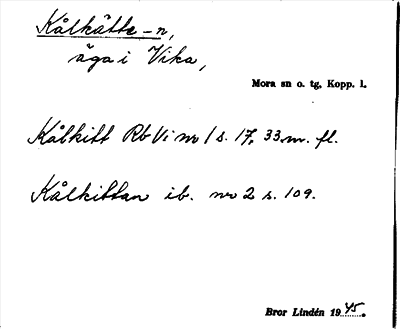 Kålkätte -n,
äga i Vika,
Mora sn o. tg, Kopp. l.
Kålkitt Rb Vi nr 1 s. 17, 33 m. fl.
Kålkittan ib. nr 2 s. 109.
Bror Lindén 1945.